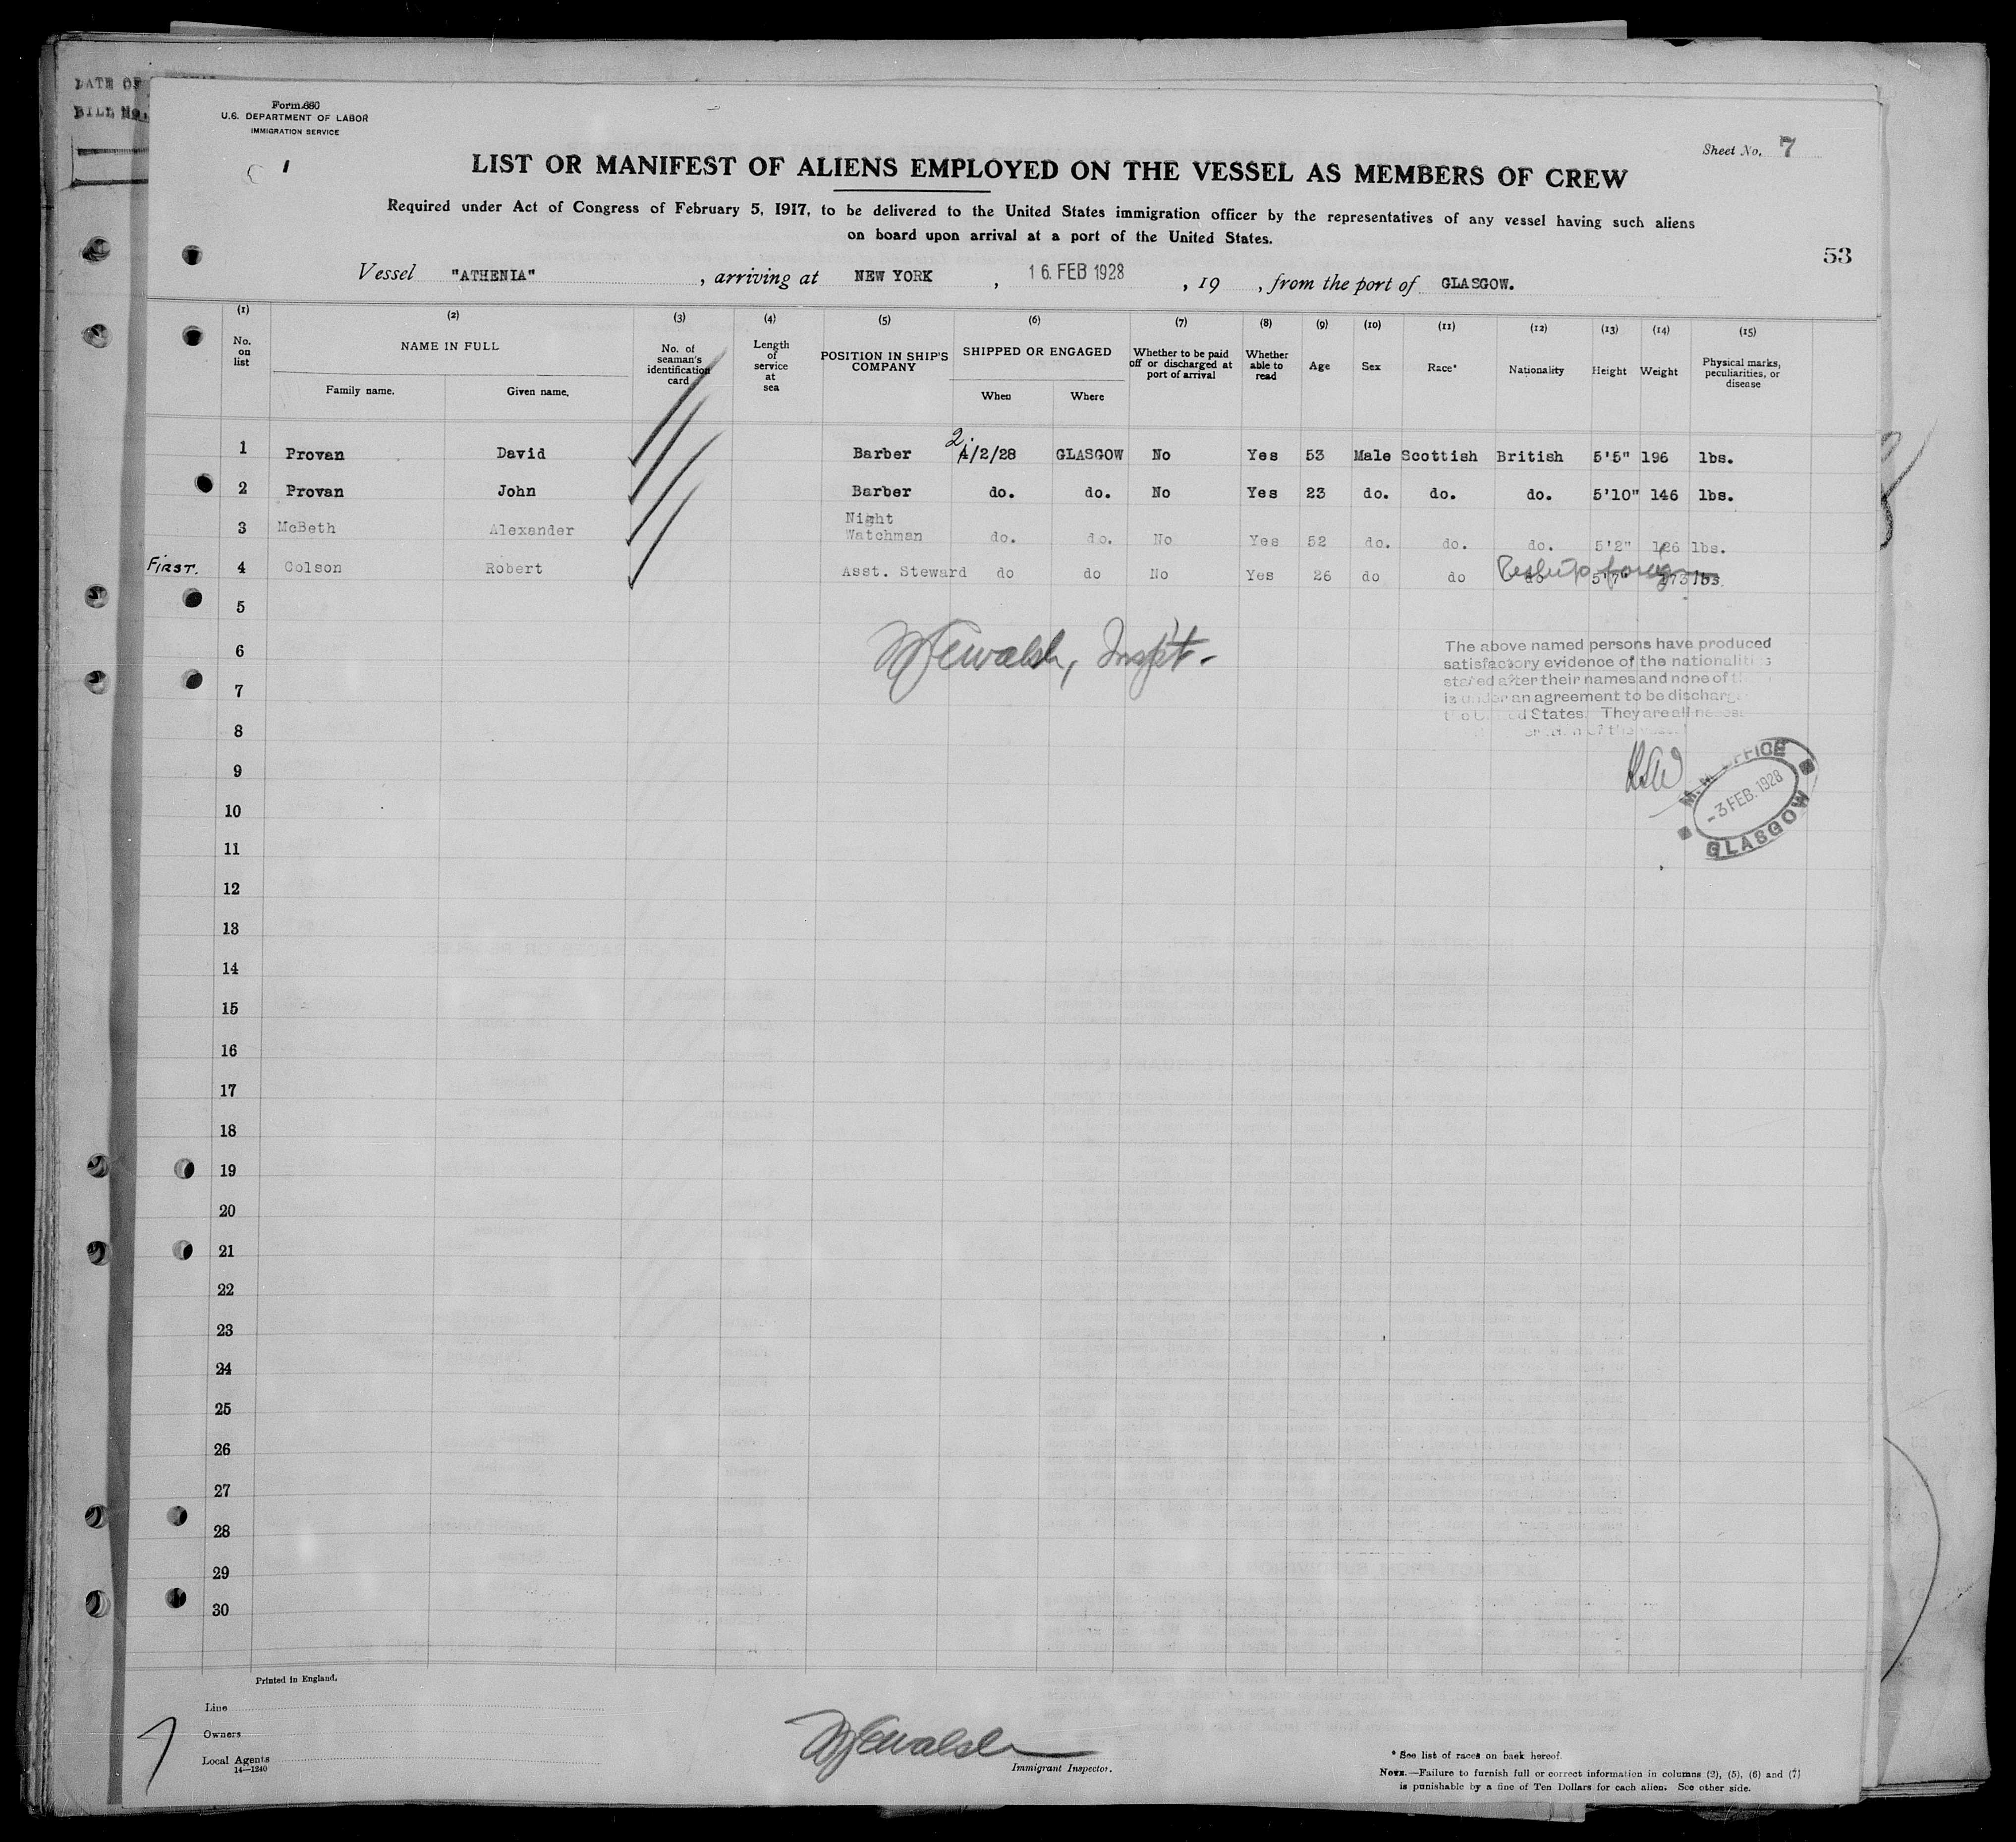 DATE OF
BILL No.
Form 680
U.S. DEPARTMENT OF LABOR
IMMIGRATION SERVICE
1
Sheet No. 7
LIST OR MANIFEST OF ALIENS EMPLOYED ON THE VESSEL AS MEMBERS OF CREW
Required under Act of Congress of February 5, 1917, to be delivered to the United States immigration officer by the representatives of any vessel having such aliens
on board upon arrival at a port of the United States.
53
Vessel "ATHENIA", arriving at NEW YORK, 16. FEB 1928, 19 , from the port of GLASGOW.
(1) (2) (3) (4) (5) (6) (7) (8) (9) (10) (11) (12) (13) (14) (15)
No. on list NAME IN FULL No. of seaman's identification card Length of service at sea POSITION IN SHIP'S COMPANY SHIPPED OR ENGAGED Whether to be paid off or discharged at port of arrival Whether able to read Age Sex Race* Nationality Height Weight Physical marks, peculiarities, or disease
Family name. Given name. When Where
1 Provan David Barber 2/2/28 GLASGOW No Yes 53 Male Scottish British 5'5" 196 lbs.
2 Provan John Barber do. do. No Yes 23 do. do. do. 5'10" 146 lbs.
3 McBeth Alexander Night Watchman do. do. No Yes 52 do. do. do. 5'2" 126 lbs.
FIRST. 4 Colson Robert Asst. Steward do do No Yes 26 do do do 5'7" 173 lbs.
5
6 Walsh, Inspt.
7
8
9
10
11
12
13
14
15
16
17
18
19
20
21
22
23
24
25
26
27
28
29
30
The above named persons have produced
satisfactory evidence of the nationalities
stated after their names and none of
is under an agreement to be discharg
the United States. They are all necess
of the vessel
M. M. OFFICE
-3 FEB. 1928
GLASGOW
Printed in England.
Line
Owners
Local Agents
14—1240
7
Walsh
Immigrant Inspector.
* See list of races on back hereof.
NOTE.—Failure to furnish full or correct information in columns (2), (5), (6) and (7)
is punishable by a fine of Ten Dollars for each alien. See other side.